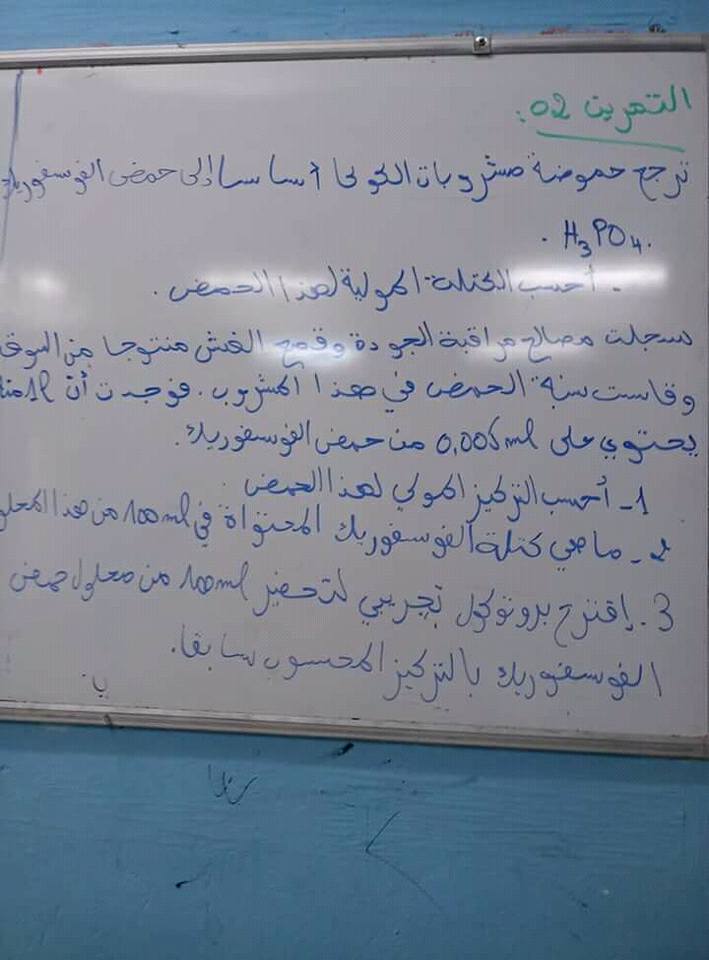 التمرين 02:
ترجع حموضة مشروبات الكولا أساسا إلى حمض الفوسفوريك
H₃PO₄.
- أحسب الكتلة المولية لهذا الحمض.
سجلت مصالح مراقبة الجودة وقمع الغش منتوجا من السوق
وقاست نسبة الحمض في هذا المشروب. فوجدت أن 1l منه
يحتوي على 0,005 ml من حمض الفوسفوريك.
1- أحسب التركيز المولي لهذا الحمض
2- ماهي كتلة الفوسفوريك المحتواة في 100 ml من هذا المحلول
3. إقترح بروتوكول تجريبي لتحضير 100 ml من محلول حمض
الفوسفوريك بالتركيز المحسوب سابقا.